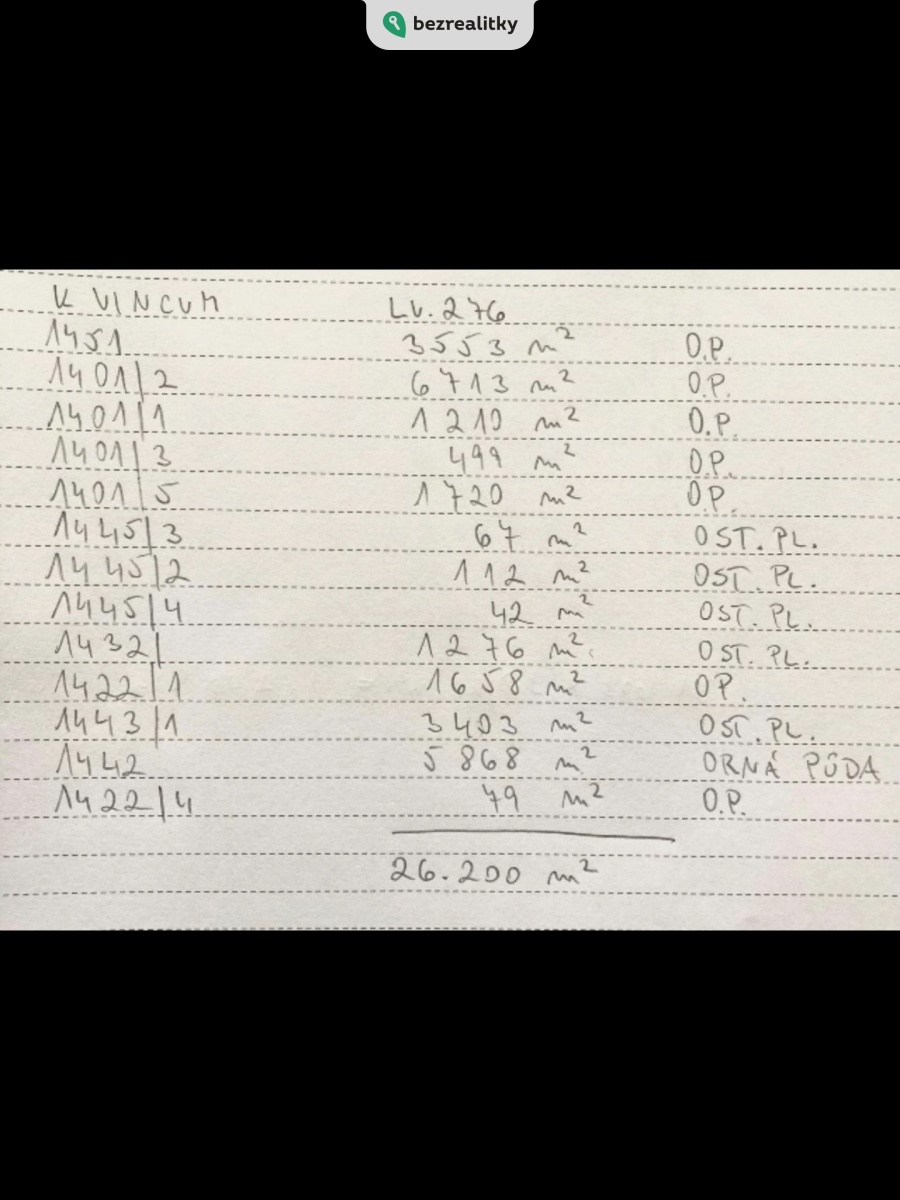 bezrealitky
K VINCUM LV. 276
1451 3553 m² O.P.
1401/2 6713 m² O.P.
1401/1 1210 m² O.P.
1401/3 499 m² O.P.
1401/5 1720 m² O.P.
1445/3 67 m² OST. PL.
1445/2 112 m² OST. PL.
1445/4 42 m² OST. PL.
1432/ 1276 m² OST. PL.
1422/1 1658 m² OP.
1443/1 3403 m² OST. PL.
1442 5868 m² ORNÁ PŮDA
1422/4 79 m² O.P.
26.200 m²